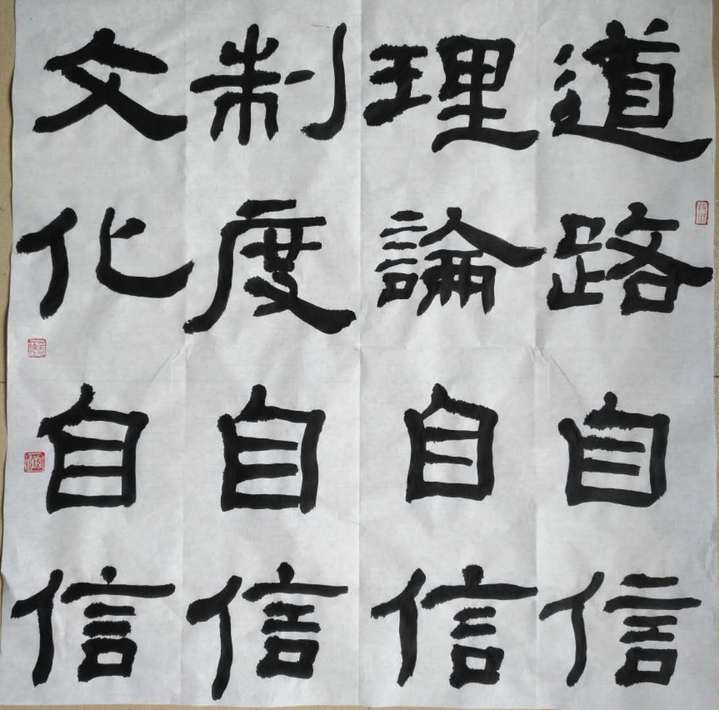 道路自信
理論自信
制度自信
文化自信